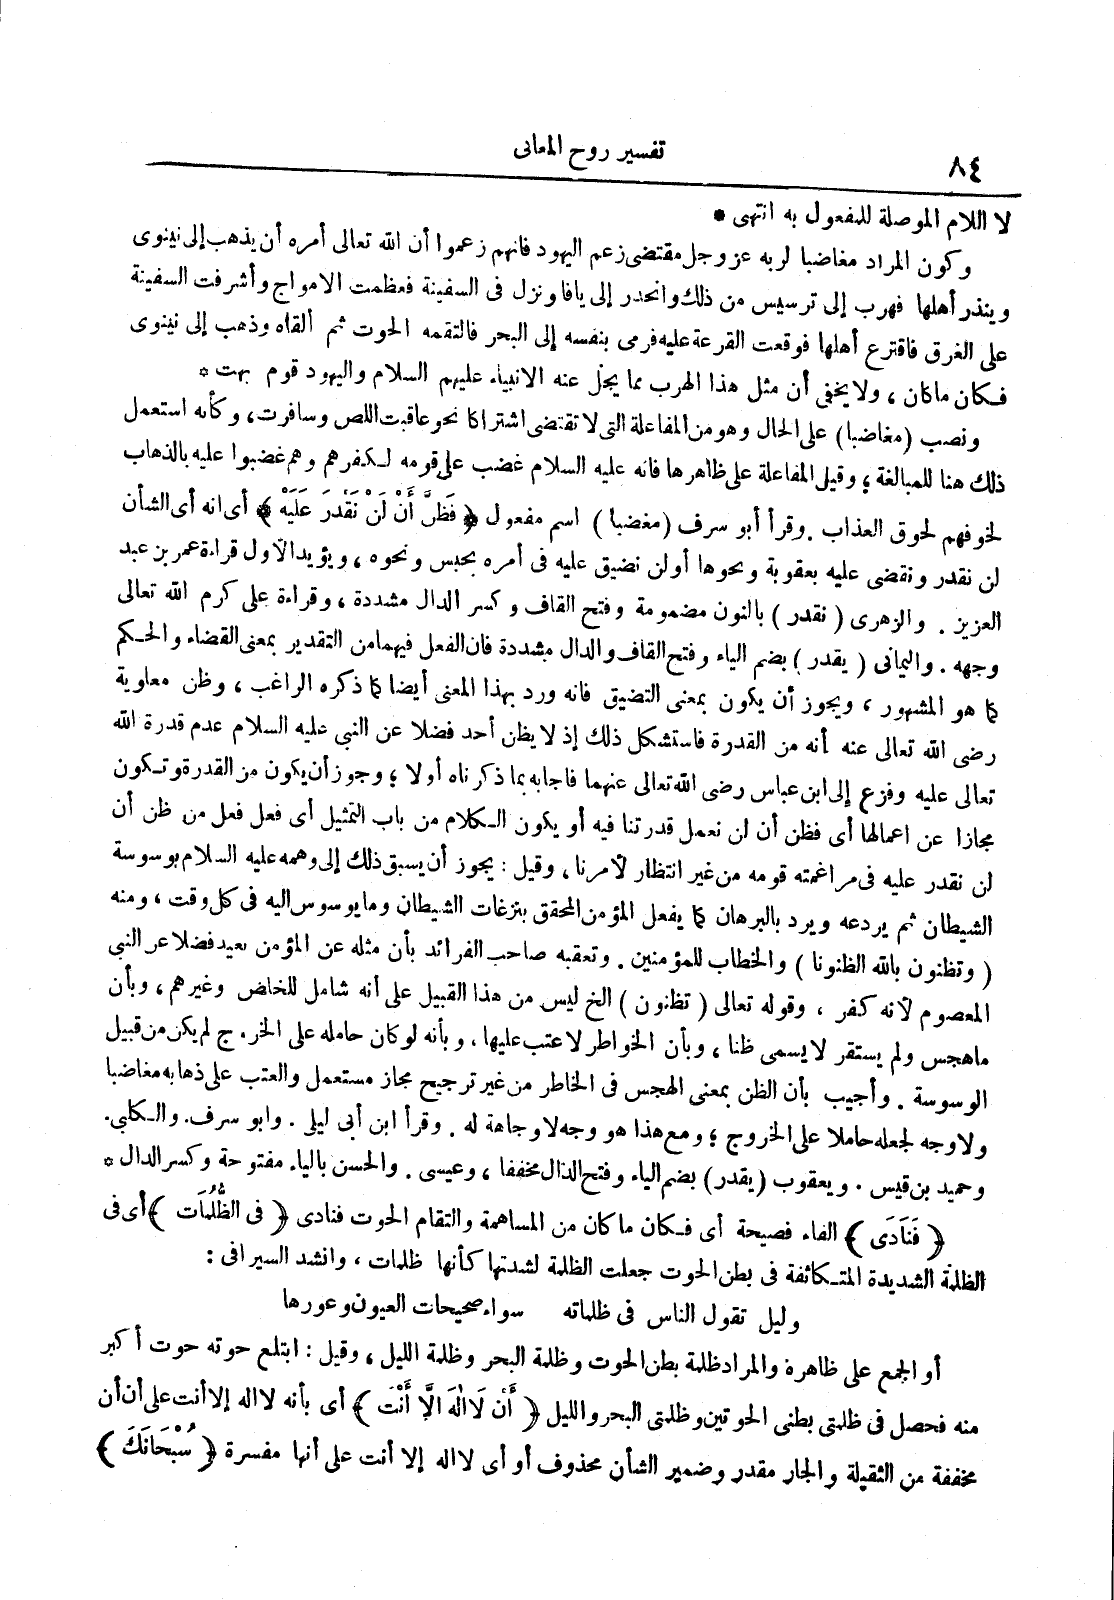 ٨٤
تفسير روح المعانى
لا اللام الموصلة للمفعول به انتهى *
وكون المراد مغاضبا لربه عز وجل مقتضى زعم اليهود فانهم زعموا أن الله تعالى أمره أن يذهب إلى نينوى
وينذر أهلها فهرب إلى ترسيس من ذلك وانحدر إلى يافا ونزل فى السفينة فعظمت الامواج وأشرفت السفينة
على الغرق فاقترع أهلها فوقعت القرعة عليه فرمى بنفسه إلى البحر فالتقمه الحوت ثم ألقاه وذهب إلى نينوى
فكان ماكان ، ولا يخفى أن مثل هذا الهرب مما يجل عنه الانبياء عليهم السلام واليهود قوم بهت *
ونصب (مغاضبا) على الحال وهو من المفاعلة التى لا تقتضى اشتراكا نحو عاقبت اللص وسافرت ، وكأنه استعمل
ذلك هنا للمبالغة ، وقيل المفاعلة على ظاهرها فانه عليه السلام غضب على قومه لكفرهم وهم غضبوا عليه بالذهاب
لخوفهم لحوق العذاب . وقرأ أبو سرف (مغضبا) اسم مفعول ﴿ فَظَنَّ أَنْ لَنْ نَقْدِرَ عَلَيْهِ ﴾ أى انه أى الشأن
لن نقدر ونقضى عليه بعقوبة ونحوها أو لن نضيق عليه فى أمره بحبس ونحوه ، ويؤيد الأول قراءة عمر بن عبد
العزيز . والزهرى ( نقدر ) بالنون مضمومة وفتح القاف وكسر الدال مشددة ، وقراءة على كرم الله تعالى
وجهه . واليمانى ( يقدر ) بضم الياء وفتح القاف والدال مشددة فان الفعل فيهما من التقدير بمعنى القضاء والحكم
كما هو المشهور ، ويجوز أن يكون بمعنى التضيق فانه ورد بهذا المعنى أيضا كما ذكره الراغب ، وظن معاوية
رضى الله تعالى عنه أنه من القدرة فاستشكل ذلك إذ لا يظن أحد فضلا عن النبى عليه السلام عدم قدرة الله
تعالى عليه وفزع إلى ابن عباس رضى الله تعالى عنهما فاجابه بما ذكرناه أولا ، وجوز أن يكون من القدرة وتكون
مجازا عن اعمالها أى فظن أن لن نعمل قدرتنا فيه أو يكون الكلام من باب التمثيل أى فعل فعل من ظن أن
لن نقدر عليه فى مراغمته قومه من غير انتظار لأمرنا ، وقيل : يجوز أن يسبق ذلك إلى وهمه عليه السلام بوسوسة
الشيطان ثم يردعه ويرد بالبرهان كما يفعل المؤمن المحقق بنزغات الشيطان وما يوسوس اليه فى كل وقت ، ومنه
( وتظنون بالله الظنونا ) والخطاب للمؤمنين . وتعقبه صاحب الفرائد بأن مثله عن المؤمن بعيد فضلا عن النبى
المعصوم لأنه كفر ، وقوله تعالى ( تظنون ) الخ ليس من هذا القبيل على أنه شامل للخاص وغيرهم ، وبأن
ماهجس ولم يستقر لا يسمى ظنا ، وبأن الخواطر لا عتب عليها ، وبأنه لو كان حامله على الخروج لم يكن من قبيل
الوسوسة . وأجيب بأن الظن بمعنى الهجس فى الخاطر من غير ترجيح مجاز مستعمل والعتب على ذهابه مغاضبا
ولا وجه لجعله حاملا على الخروج ، ومع هذا هو وجه لا وجاهة له . وقرأ ابن أبى ليلى . وابو سرف . والكلبى .
وحميد بن قيس . ويعقوب (يقدر) بضم الياء وفتح الدال مخففا ، وعيسى . والحسن بالياء مفتوحة وكسر الدال *
﴿ فَنَادَى ﴾ الفاء فصيحة أى فكان ماكان من المساهمة والتقام الحوت فنادى ﴿ فى الظُّلُمَات ﴾ أى فى
الظلمة الشديدة المتكاثفة فى بطن الحوت جعلت الظلمة لشدتها كأنها ظلمات ، وانشد السيرافى :
وليل تقول الناس فى ظلماته سواء صحيحات العيون وعورها
أو الجمع على ظاهره والمراد ظلمة بطن الحوت وظلمة البحر وظلمة الليل ، وقيل : ابتلع حوته حوت أكبر
منه فحصل فى ظلمتى بطنى الحوتين وظلمتى البحر والليل ﴿ أَنْ لَا الَهَ الَّا أَنْتَ ﴾ أى بأنه لا اله إلا أنت على أن أن
مخففة من الثقيلة والجار مقدر وضمير الشأن محذوف أو أى لا اله إلا أنت على أنها مفسرة ﴿ سُبْحَانَكَ ﴾